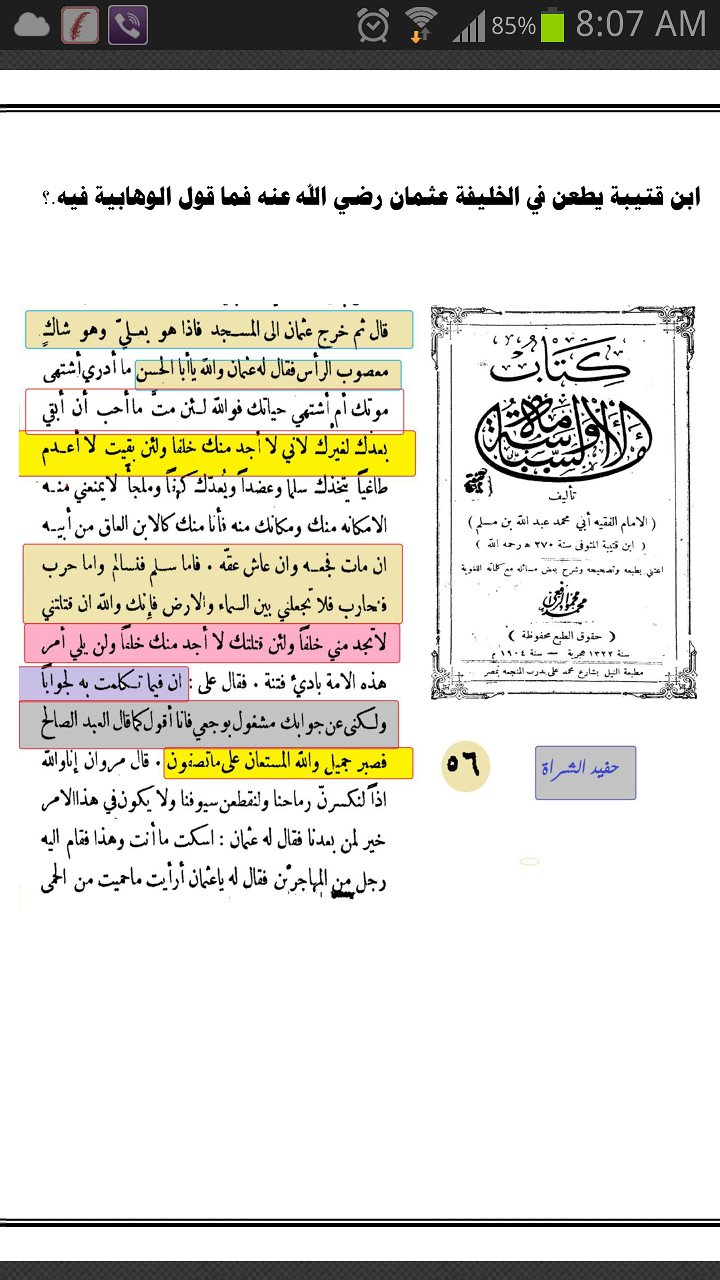 85% 8:07 AM
ابن قتيبة يطعن في الخليفة عثمان رضي الله عنه فما قول الوهابية فيه.؟
كتاب
الامامة والسياسة
تأليف
( الامام الفقيه أبي محمد عبد الله بن مسلم )
( ابن قتيبة المتوفى سنة ٢٧٠ ه رحمه الله )
اعتنى بطبعه وتصحيحه وشرح بعض مسائله مع كلماته اللغوية
محمد محمود الرافعي
( حقوق الطبع محفوظة )
سنة ١٣٢٢ هجرية — سنة ١٩٠٤ م
مطبعة النيل بشارع محمد على بدرب المنجمه بمصر
٥٦
حفيد الشراة
قال ثم خرج عثمان الى المسجد فاذا هو بعليّ وهو شاكٍ
معصوب الرأس فقال له عثمان والله ياأبا الحسن ما أدري أشتهى
موتك أم أشتهي حياتك فوالله لئن متَّ ما أحب أن أبقي
بعدك لغيرك لاني لا أجد منك خلفا ولئن بقيت لا أعدم
طاغياً يتخذك سلما وعضداً ويُعدّك كهفاً وملجأً لايمنعني منه
الامكانه منك ومكانك منه فأنا منك كالابن العاق من أبيه
ان مات فجعه وان عاش عقّه ٠ فاما سلم فنسالم واما حرب
فنحارب فلا تجعلني بين السماء والارض فإنك والله ان قتلتني
لاتجد مني خلفاً ولئن قتلتك لا أجد منك خلفاً ولن يلي أمر
هذه الامة بادئ فتنة ٠ فقال على : ان فيما تكلمت به لجواباً
ولكنى عن جوابك مشغول بوجعي فانا أقول كما قال العبد الصالح
فصبر جميل والله المستعان على ماتصفون ٠ قال مروان إناوالله
اذاً لنكسرنّ رماحنا ولنقطعن سيوفنا ولا يكون في هذا الامر
خير لمن بعدنا فقال له عثمان : اسكت ما أنت وهذا فقام اليه
رجل من المهاجرين فقال له ياعثمان أرأيت ماحميت من الحمى